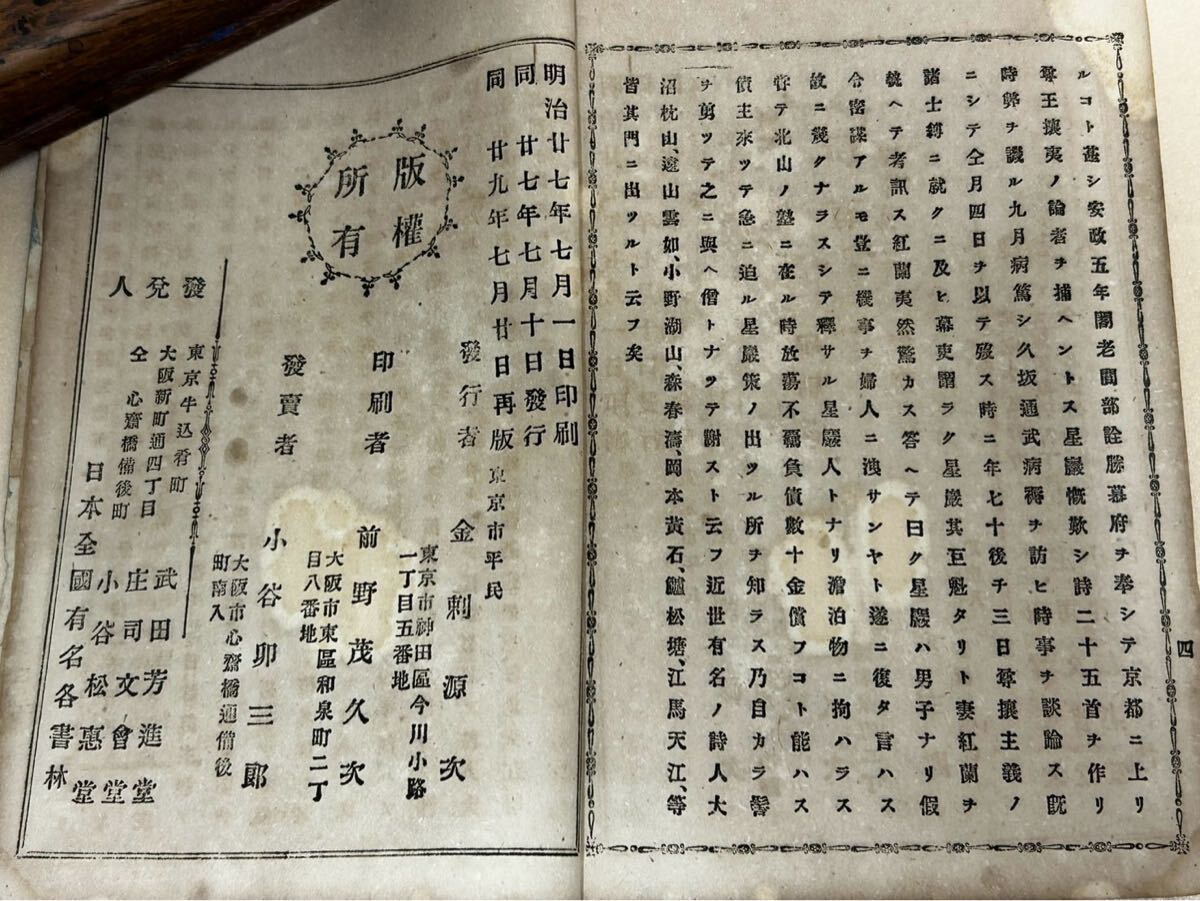 ルコト甚シ安政五年閣老間部詮勝幕府ヲ奉シテ京都ニ上リ
尊王攘夷ノ論者ヲ捕ヘントス星巖慨歎シ詩二十五首ヲ作リ
時弊ヲ譏ル九月病篤シ久坂通武病褥ヲ訪ヒ時事ヲ談論ス既
ニシテ仝月四日ヲ以テ歿ス時ニ年七十後チ三日尊攘主義ノ
諸士縛ニ就クニ及ヒ幕吏謂ラク星巖其巨魁タリト妻紅蘭ヲ
執ヘテ考訊ス紅蘭夷然驚カス答ヘテ曰ク星巖ハ男子ナリ假
令密謀アルモ豈ニ機事ヲ婦人ニ洩サンヤト遂ニ復タ言ハス
故ニ幾クナラスシテ釋サル星巖人トナリ澹泊物ニ拘ハラス
甞テ北山ノ塾ニ在ル時放蕩不羈負債數十金償フコト能ハス
債主來ツテ急ニ迫ル星巖策ノ出ツル所ヲ知ラス乃自カラ髻
ヲ剪ツテ之ニ與ヘ僧トナツテ謝スト云フ近世有名ノ詩人大
沼枕山、遠山雲如、小野湖山、森春濤、岡本黃石、鱸松塘、江馬天江、等
皆其門ニ出ツルト云フ矣
四
明治廿七年七月一日印刷
同廿七年七月十日發行
同廿九年七月廿日再版
版權
所有
東京市平民
發行者 金刺源次
東京市神田區今川小路
一丁目五番地
印刷者 前野茂久次
大阪市東區和泉町二丁
目八番地
發賣者 小谷卯三郎
大阪市心齋橋通備後
町南入
發兌人
東京牛込肴町 武田芳進堂
大阪新町通四丁目 庄司文會堂
仝心齋橋備後町 小谷松惠堂
日本全國有名各書林